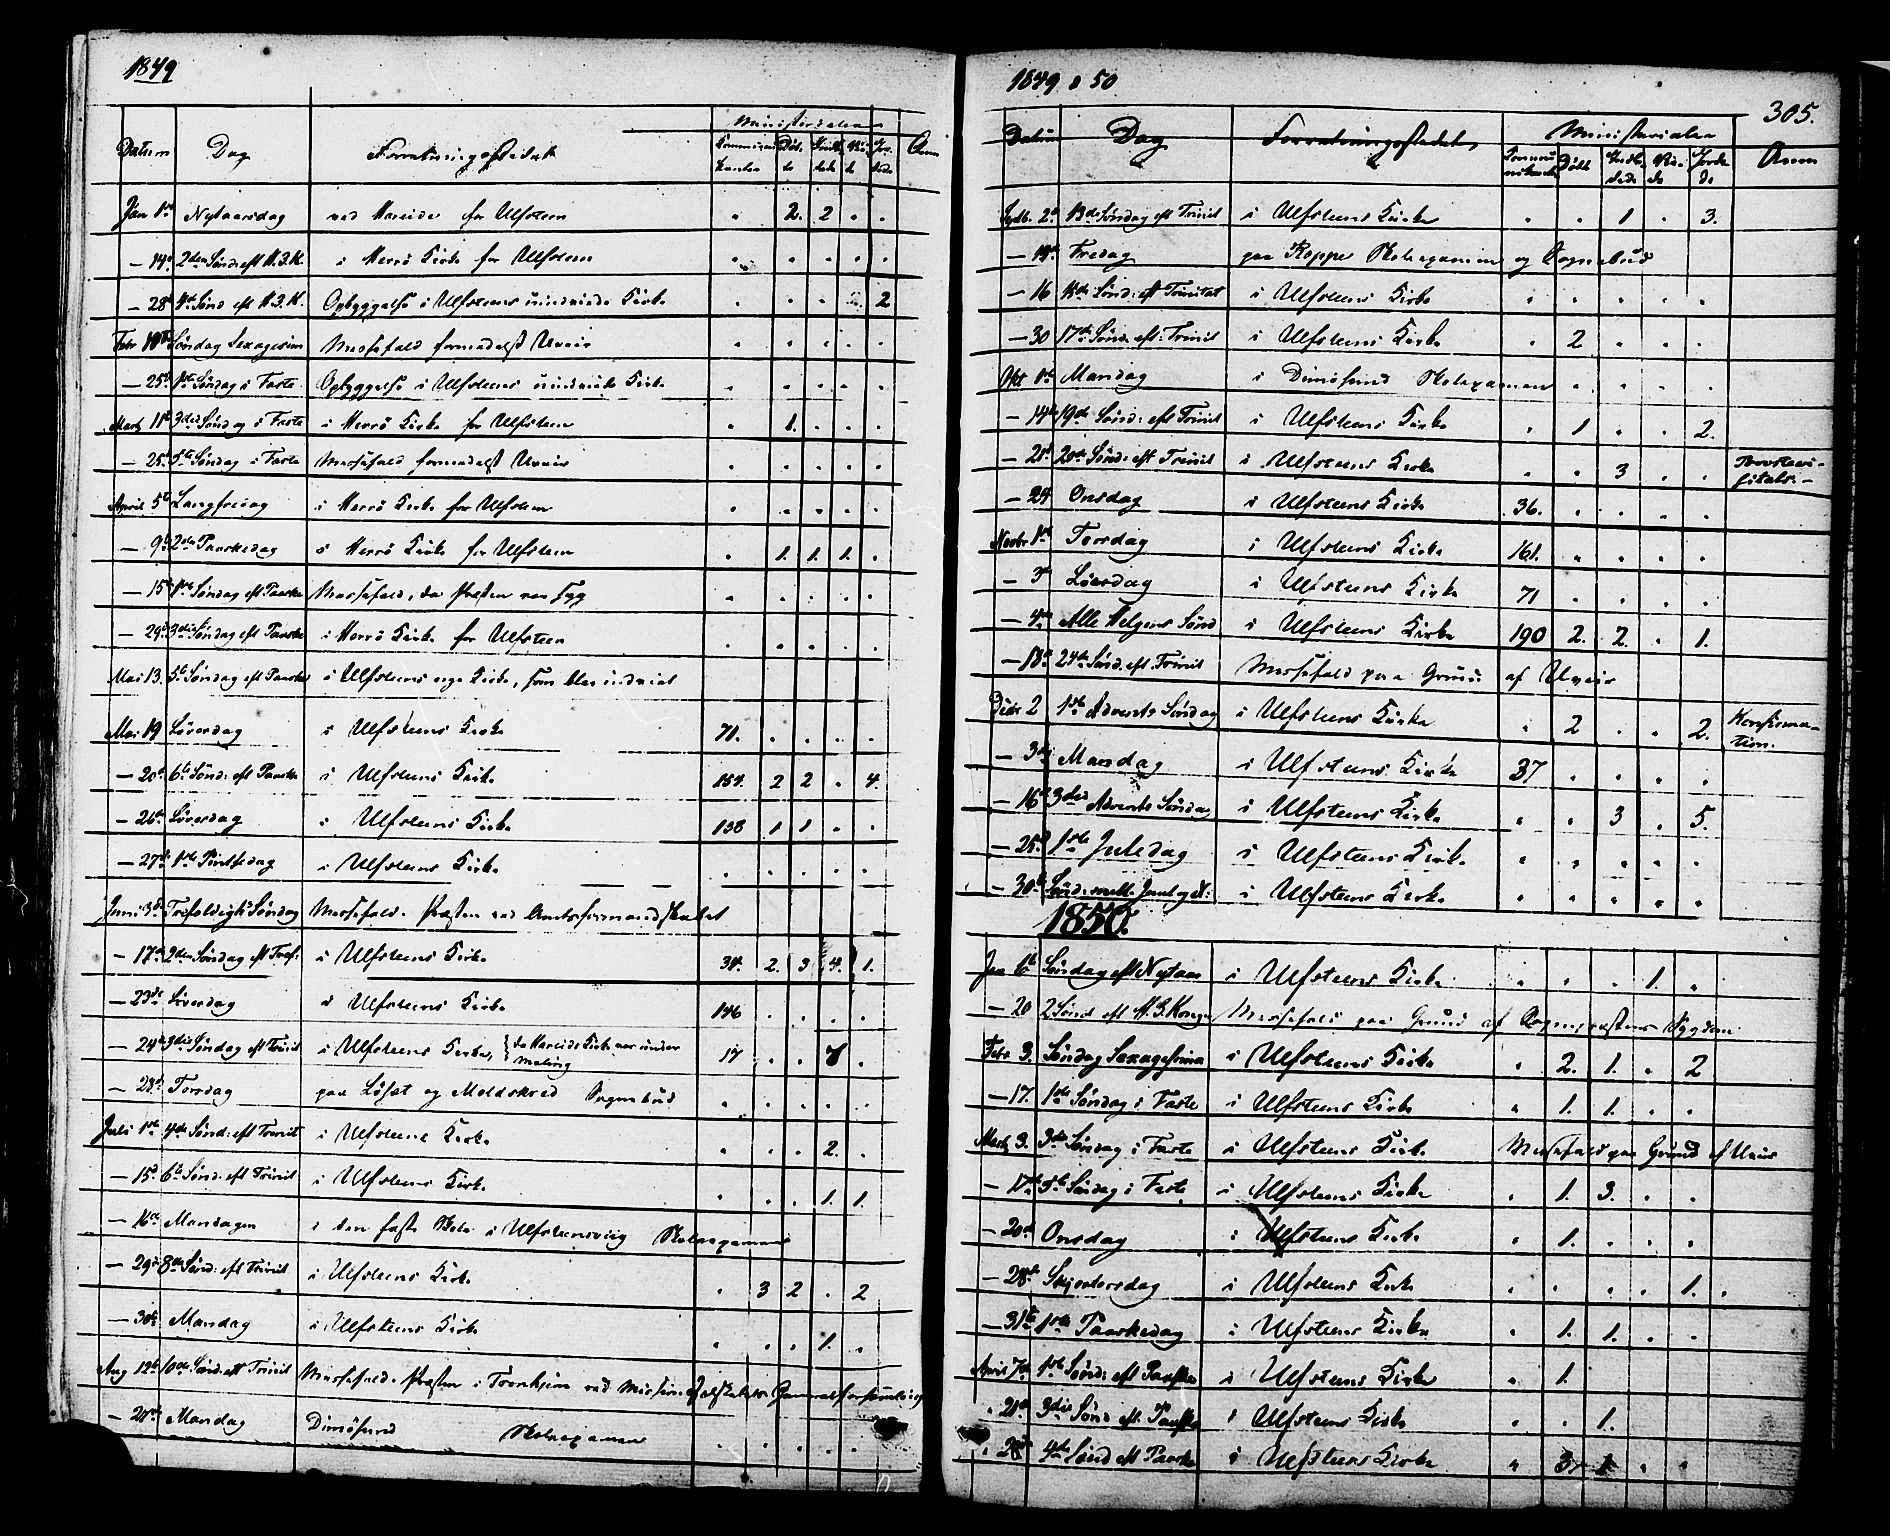 1849
Datum Dag Forretningsstedet Ministerialia Anm
Communicanter Døbte Introd. Viede Jorded.
Jan 1ste Nytaarsdag ved Hareide for Ulfsteen " 2. 2 " "
— 14de 2den Sønd: eft H.3.K. i Herrö Kirke for Ulfsteen
— 28de 4de Sønd eft H.3.K. Opbyggelse i Ulfsteens uindviede Kirke 2
Febr 11te Søndag Sexagesim Messefald formedelst Uveir
— 25de 1ste Søndag i Faste Opbyggelse i Ulfsteens uindviede Kirke
Marts 11te 3die Søndag i Faste i Herrö Kirke for Ulfsteen " 1. " " "
— 25de 5te Søndag i Faste Messefald formedelst Uveir
April 5te Langfredag i Herrö Kirke for Ulfsteen
— 9de 2den Paaskedag i Herrö Kirke for Ulfsteen " 1. 1. 1. "
— 15de 1ste Søndag eft Paaske Messefald, da Præsten var syg
— 29de 3die Søndag eft Paaske i Herrö Kirke for Ulfsteen
Mai 13. 5te Søndag eft Paaske i Ulfsteens nye Kirke, som blev indviet
Mai 19 Løverdag i Ulfsteens Kirke 71. " " " "
— 20de 6te Sønd: eft Paaske i Ulfsteens Kirke 154. 2 2 " 4.
— 26de Løverdag i Ulfsteens Kirke 138 1 1 " "
— 27de 1ste Pintsedag i Ulfsteens Kirke
Juni 3die Trefoldigh: Søndag Messefald. Præsten ved Amtsformandskabet
— 17de 2den Søndag eft Tref. i Ulfsteens Kirke 34. 2. 3 4. 1.
— 23de Løverdag i Ulfsteens Kirke 146 " " " "
— 24de 3die Søndag eft Trinit i Ulfsteens Kirke, da Hareide Kirke var under Maling 17 " " 7 "
— 28de Torsdag paa Løset og Moldskred Sognebud
Juli 1ste 4de Sønd: eft Trinit i Ulfsteens Kirke " " " 2. "
— 15de 6te Sønd: eft Trinit i Ulfsteens Kirke " " " 1. 1.
— 16de Mandagen i den faste Skole i Ulfsteensviig Skolexamen
— 29de 8de Sønd: eft Trinit i Ulfsteens Kirke " 3 2 " 2
— 30de Mandag i Ulfsteens Kirke " " " 1. "
Aug 12te 10de Sønd: eft Trinit Messefald. Præsten i Tronhjem ved Missionsselskabets Generalforsamling
— 20de Mandag Dimøsund Skolexamen
1849 & 50
305.
Datum Dag Forretningsstedet Ministerialia Anm
Communicanter Døbte Introdude Viede Jordede
Septb. 2den 13de Søndag eft Trinit i Ulfsteens Kirke " " 1 " 3.
— 14de Fredag paa Koppe Skolexamen og Sognebud
— 16 15de Sønd: eft Trinitat i Ulfsteens Kirke
— 30 17de Sønd: eft: Trinit i Ulfsteens Kirke " 2 " " "
Oct 1ste Mandag i Dimøsund Skolexamen
— 14de 19de Sønd: eft Trinit i Ulfsteens Kirke " 1 " " 2.
— 21de 20de Sønd: eft Trinit i Ulfsteens Kirke " " 3 " " Provstevisitats.—
— 24 Onsdag i Ulfsteens Kirke 36. " " " "
Novbr 1ste Torsdag i Ulfsteens Kirke 161. " " " "
— 3die Løverdag i Ulfsteens Kirke 71 " " " "
— 4de Alle Helgens Sønd i Ulfsteens Kirke 190 2. 2. " 1.
— 18de 24de Sønd. eft Trinit Messefald paa Grund af Uveir
Decbr 2 1ste Advents Søndag i Ulfsteens Kirke " 2 " " 2. Konfirmation.
— 3die Mandag i Ulfsteens Kirke 37 " " " "
— 16de 3die Advents Søndag i Ulfsteens Kirke " " 3 " 5.
— 25de 1ste Juledag i Ulfsteens Kirke
— 30te Sønd. mell: Juul og N: i Ulfsteens Kirke
1850.
Jan 6te Søndag eft Nytaar i Ulfsteens Kirke " " " 1. "
— 20 2 Sønd eft H.3.Konger Messefald paa Grund af Sognepræstens Sygdom
Febr 3. Søndag Sexagesima i Ulfsteens Kirke " 2. 1. " 2
— 17. 1ste Søndag i Faste i Ulfsteens Kirke " 1. 1. " "
Marts 3. 3die Søndag i Faste i Ulfsteens Kirke Messefald paa Grund af Uveir
— 17de 5te Søndag i Faste i Ulfsteens Kirke " 1. 3. " "
— 20de Onsdag i Ulfsteens Kirke " 1. " " "
— 28de Skjærtorsdag i Ulfsteens Kirke " " " " 1.
— 31te 1ste Paaskedag i Ulfsteens Kirke " 1. 1. " "
April 7de 1ste Sønd: eft Paaske i Ulfsteens Kirke " 1.
" 21de 3die Sønd eft. Paaske i Ulfsteens Kirke " " 1.
" 28de 4de Sønd eft Paaske i Ulfsteens Kirke " 3. 1 " "